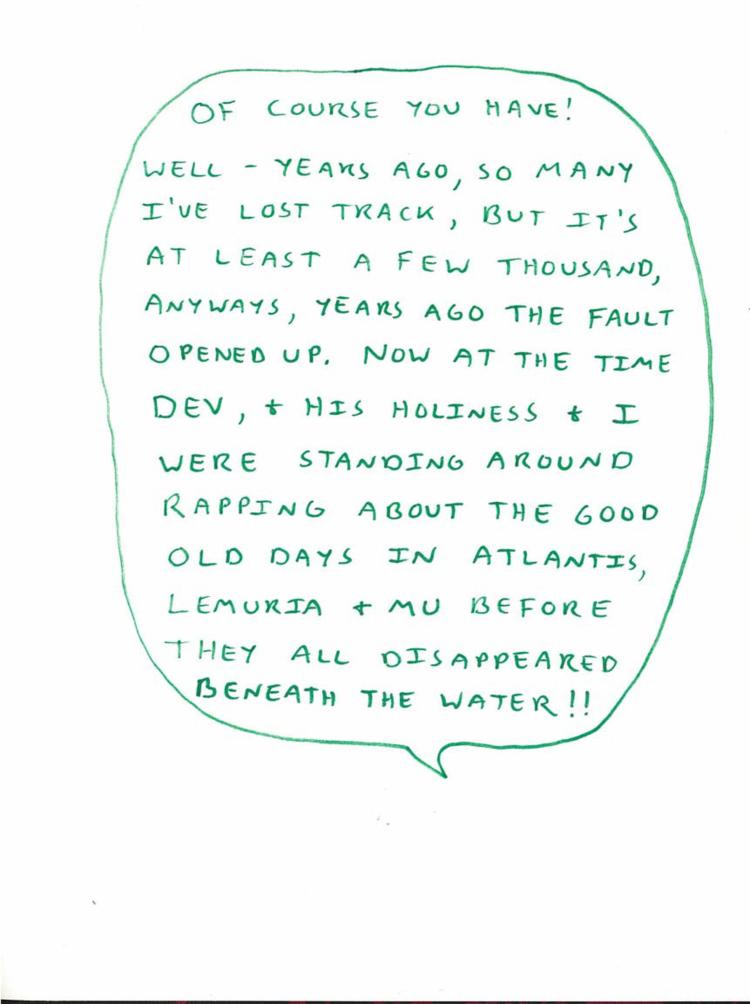 OF COURSE YOU HAVE!
WELL - YEARS AGO, SO MANY
I'VE LOST TRACK, BUT IT'S
AT LEAST A FEW THOUSAND,
ANYWAYS, YEARS AGO THE FAULT
OPENED UP. NOW AT THE TIME
DEV, + HIS HOLINESS + I
WERE STANDING AROUND
RAPPING ABOUT THE GOOD
OLD DAYS IN ATLANTIS,
LEMURIA + MU BEFORE
THEY ALL DISAPPEARED
BENEATH THE WATER!!